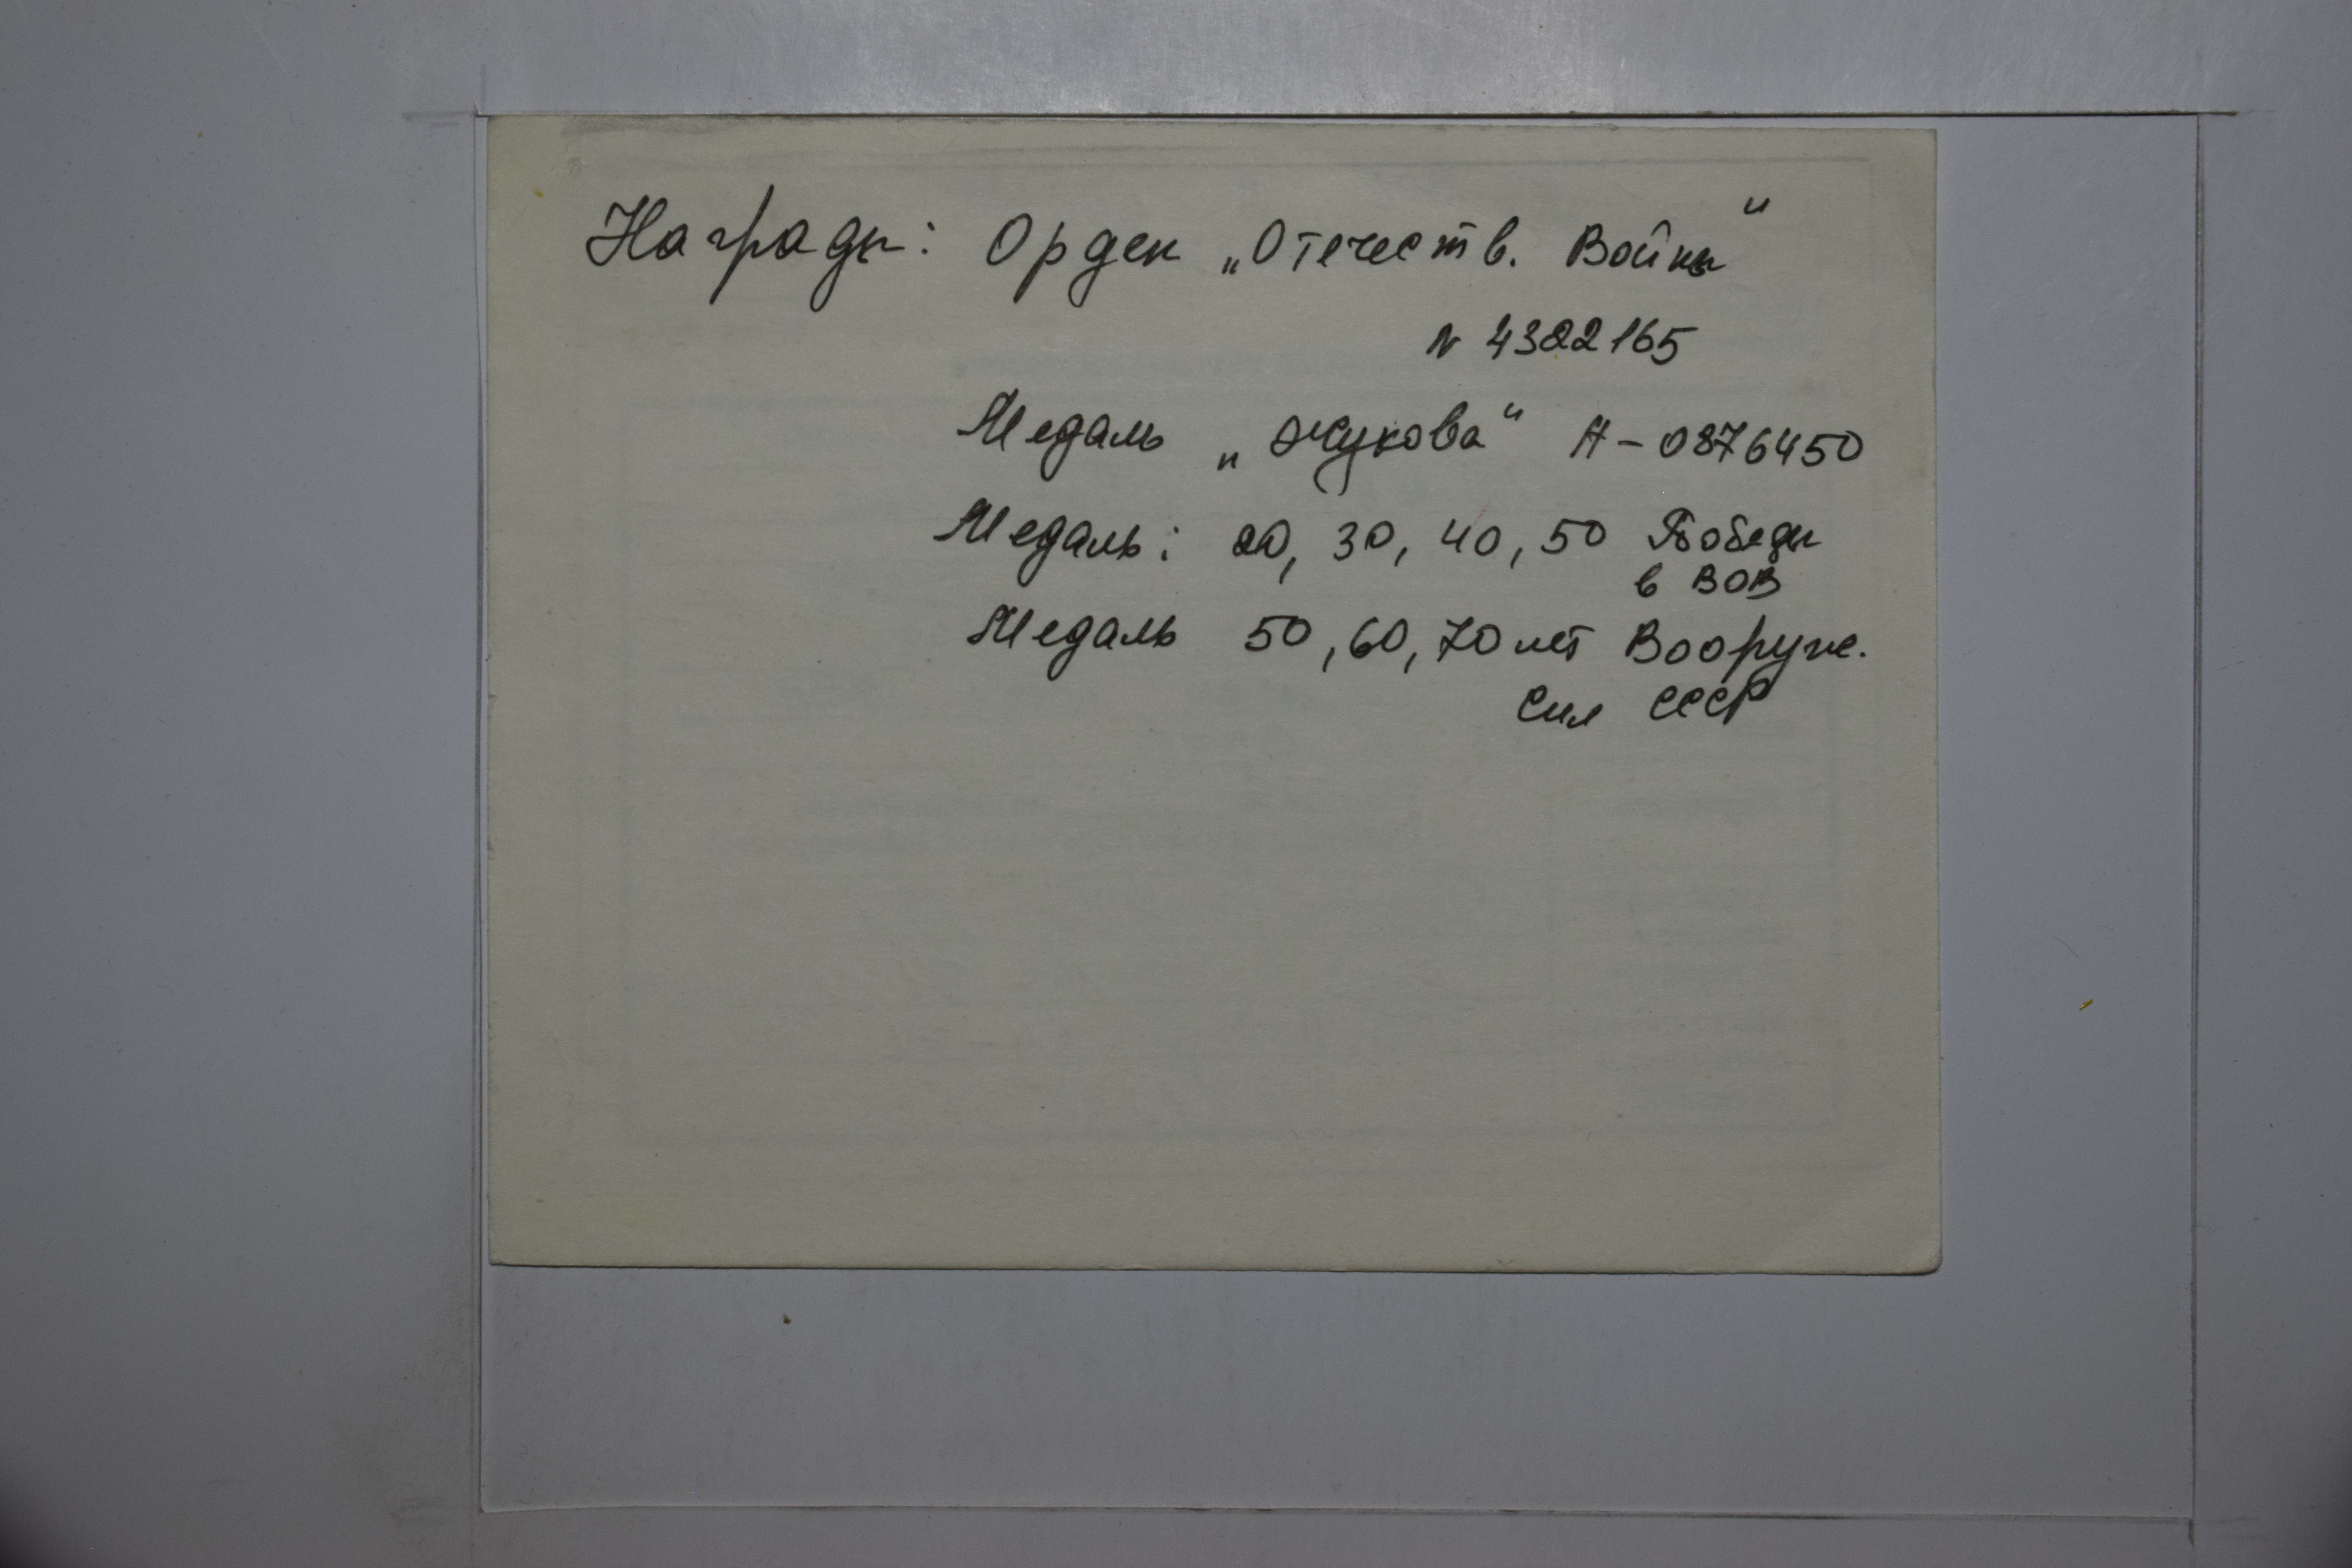 Награды: Орден „Отечеств. Войны“
N 4322165
Медаль „Жукова“ А-0876450
Медаль: 20, 30, 40, 50 Победы
в ВОВ
Медаль 50, 60, 70 лет Вооруж.
Сил СССР